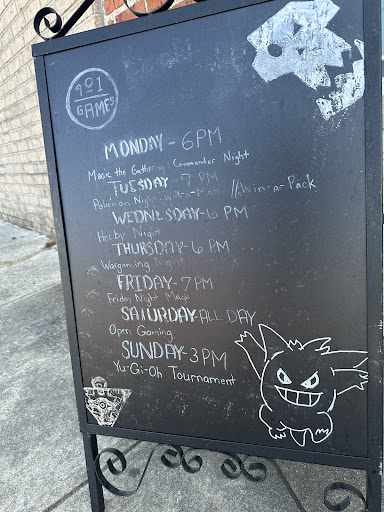 901
GAMES
MONDAY - 6PM
Magic the Gathering: Commander Night
TUESDAY - 7 PM
Pokémon Night // Win-a-Pack
WEDNESDAY - 6 PM
Night
THURSDAY - 6 PM
Wargaming Night
FRIDAY - 7PM
Friday Night Magic
SATURDAY - ALL DAY
Open Gaming
SUNDAY - 3PM
Yu-Gi-Oh Tournament